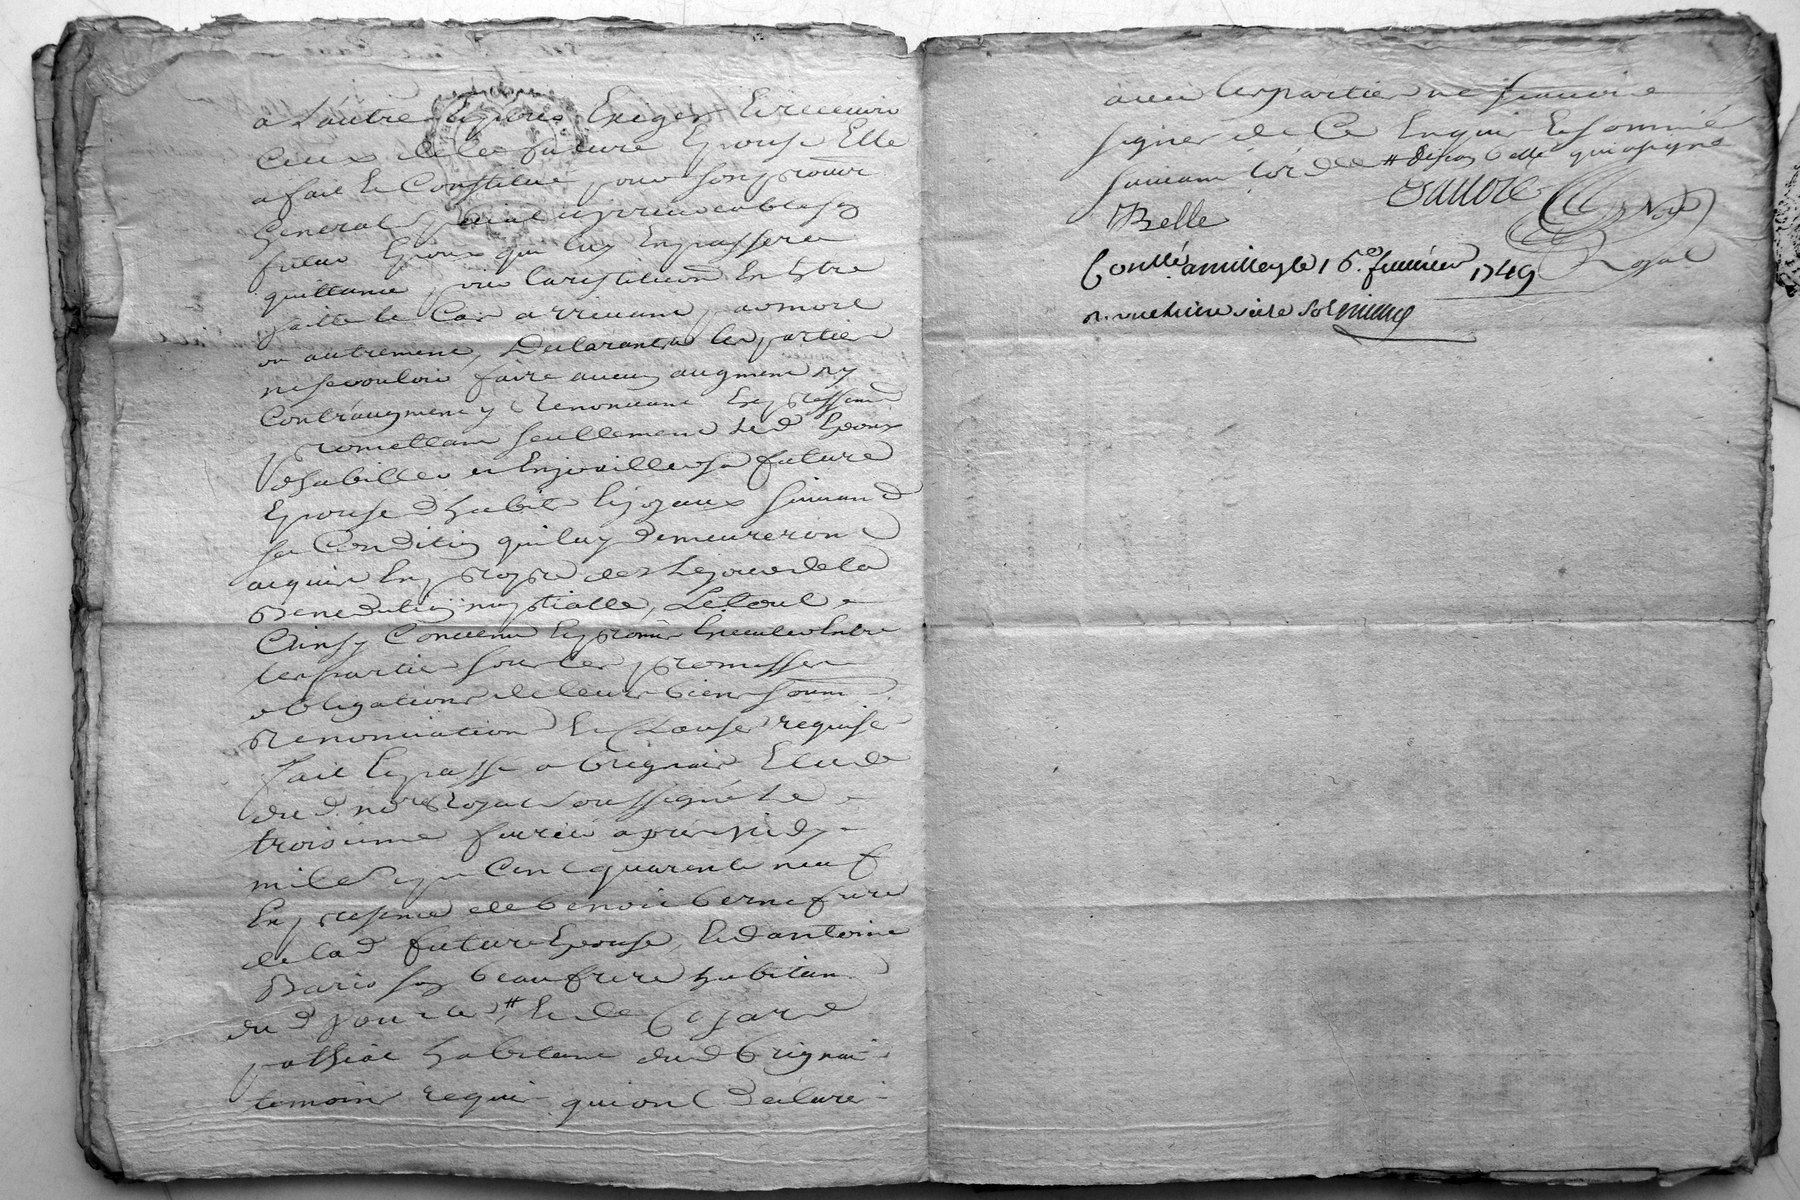 a l'autre Exiger Et recevoir
Ceux de la future Epouse Elle
a fait Et Constitue pour son procur
General special irrevocable son
futur Epoux qui luy En passera
quittance pour la restitution En Estre
faitte le Cas arrivant par mort
ou autrement, Declarant les parties
ne se vouloir faire aucun augment ny
Contraugment y Renoncant Expressem
promettant seullement led Epoux
dhabiller et Enjoailler sa future
Epouse d'habit Et joyaux suivant
sa Condition qui luy demeureront
acquis En propre des le jour de la
Benediction nuptialle, Le tout
Ainsy Convenu Et promis Executer Entre
les parties sous les promesses
obligations de leurs biens soum
Renonciation Et Clauses requises
fait Et passé a brignais Etude
du d. no.re Royal soussigné Le
troisieme fevrier apres midy
mil sept Cent quarante neuf
En presence de benoit berne frere
de la d future Epouse, Et d'antoine
son beau frere habitant
du d # Et de
habitant dud brignais
temoins requis qui ont Declaré
avec les parties ne scavoir
signer de Ce Enquis Et sommé
suivant l'ord # qui a signé
Belle
No.re
Royal
Conllé a millery le 16.e fevrier 1749